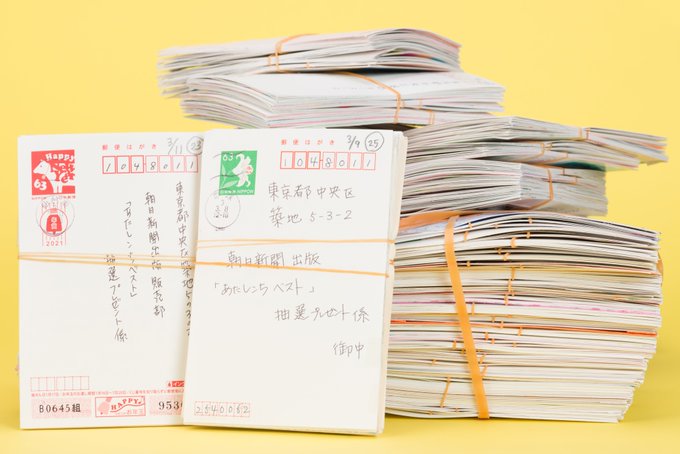 郵便はがき
3/11
23
Happy
63
1048011
東京都中央区築地5-3-2
朝日新聞出版販売部
「あたしンちベスト」
抽選プレゼント係
2021
B0645組
953
郵便はがき
3/9
25
63
NIPPON
1048011
東京都中央区
築地 5-3-2
朝日新聞 出版
「あたしンちベスト」
抽選プレゼント係
御中
2540052